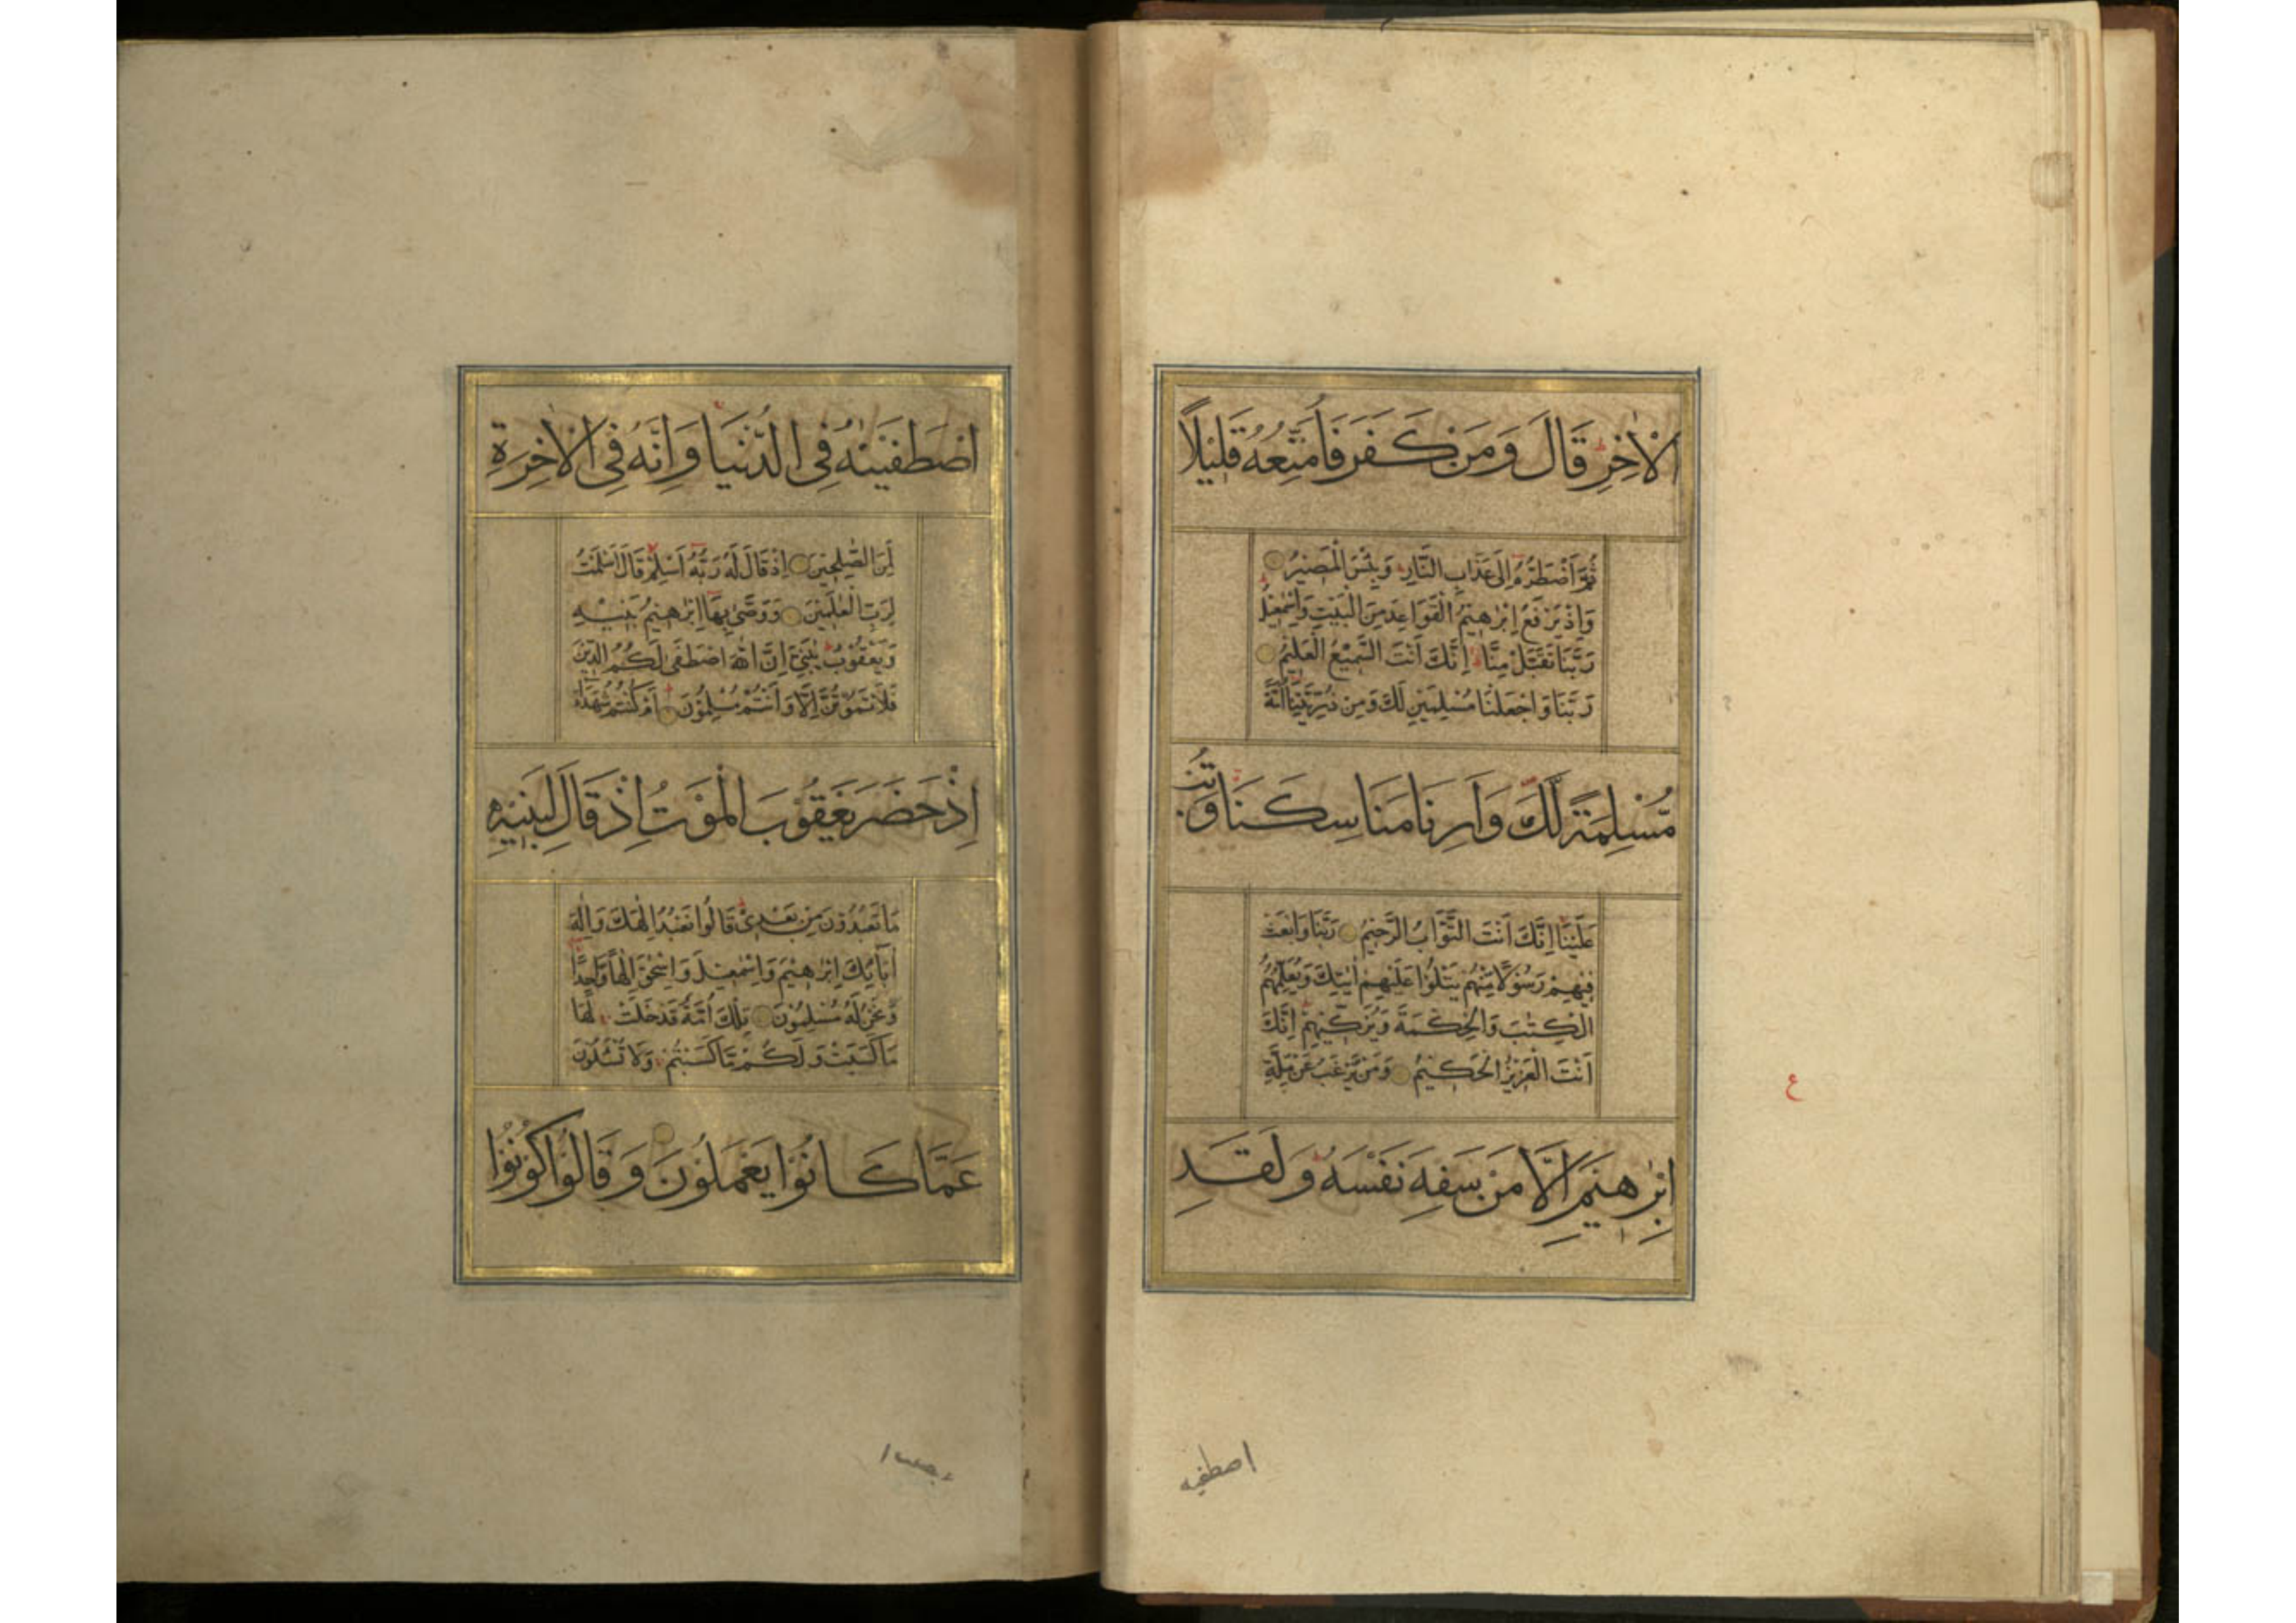 الْاٰخِرِ قَالَ وَمَنْ كَفَرَ فَاُمَتِّعُهُ قَلِيْلًا
ثُمَّ اَضْطَرُّهُ اِلٰى عَذَابِ النَّارِ وَبِئْسَ الْمَصِيْرُ
وَاِذْ يَرْفَعُ اِبْرٰهِيْمُ الْقَوَاعِدَ مِنَ الْبَيْتِ وَاِسْمٰعِيْلُ
رَبَّنَا تَقَبَّلْ مِنَّا اِنَّكَ اَنْتَ السَّمِيْعُ الْعَلِيْمُ
رَبَّنَا وَاجْعَلْنَا مُسْلِمَيْنِ لَكَ وَمِنْ ذُرِّيَّتِنَا اُمَّةً
مُّسْلِمَةً لَّكَ وَاَرِنَا مَنَاسِكَنَا وَتُبْ
عَلَيْنَا اِنَّكَ اَنْتَ التَّوَّابُ الرَّحِيْمُ رَبَّنَا وَابْعَثْ
فِيْهِمْ رَسُوْلًا مِّنْهُمْ يَتْلُوْا عَلَيْهِمْ اٰيٰتِكَ وَيُعَلِّمُهُمُ
الْكِتٰبَ وَالْحِكْمَةَ وَيُزَكِّيْهِمْ اِنَّكَ
اَنْتَ الْعَزِيْزُ الْحَكِيْمُ وَمَنْ يَّرْغَبُ عَنْ مِلَّةِ
اِبْرٰهٖيْمَ اِلَّا مَنْ سَفِهَ نَفْسَهُ وَلَقَدِ
ع
اصطفيه
اصْطَفَيْنٰهُ فِي الدُّنْيَا وَاِنَّهُ فِي الْاٰخِرَةِ
لَمِنَ الصّٰلِحِيْنَ اِذْ قَالَ لَهُ رَبُّهُ اَسْلِمْ قَالَ اَسْلَمْتُ
لِرَبِّ الْعٰلَمِيْنَ وَوَصّٰى بِهَا اِبْرٰهِيْمُ بَنِيْهِ
وَيَعْقُوْبُ يٰبَنِيَّ اِنَّ اللّٰهَ اصْطَفٰى لَكُمُ الدِّيْنَ
فَلَا تَمُوْتُنَّ اِلَّا وَاَنْتُمْ مُسْلِمُوْنَ اَمْ كُنْتُمْ شُهَدَآءَ
اِذْ حَضَرَ يَعْقُوْبَ الْمَوْتُ اِذْ قَالَ لِبَنِيْهِ
مَا تَعْبُدُوْنَ مِنْ بَعْدِيْ قَالُوْا نَعْبُدُ اِلٰهَكَ وَاِلٰهَ
اٰبَآئِكَ اِبْرٰهِيْمَ وَاِسْمٰعِيْلَ وَاِسْحٰقَ اِلٰهًا وَّاحِدًا
وَّنَحْنُ لَهُ مُسْلِمُوْنَ تِلْكَ اُمَّةٌ قَدْ خَلَتْ لَهَا
مَا كَسَبَتْ وَلَكُمْ مَّا كَسَبْتُمْ وَلَا تُسْئَلُوْنَ
عَمَّا كَانُوْا يَعْمَلُوْنَ وَقَالُوْا كُوْنُوْا